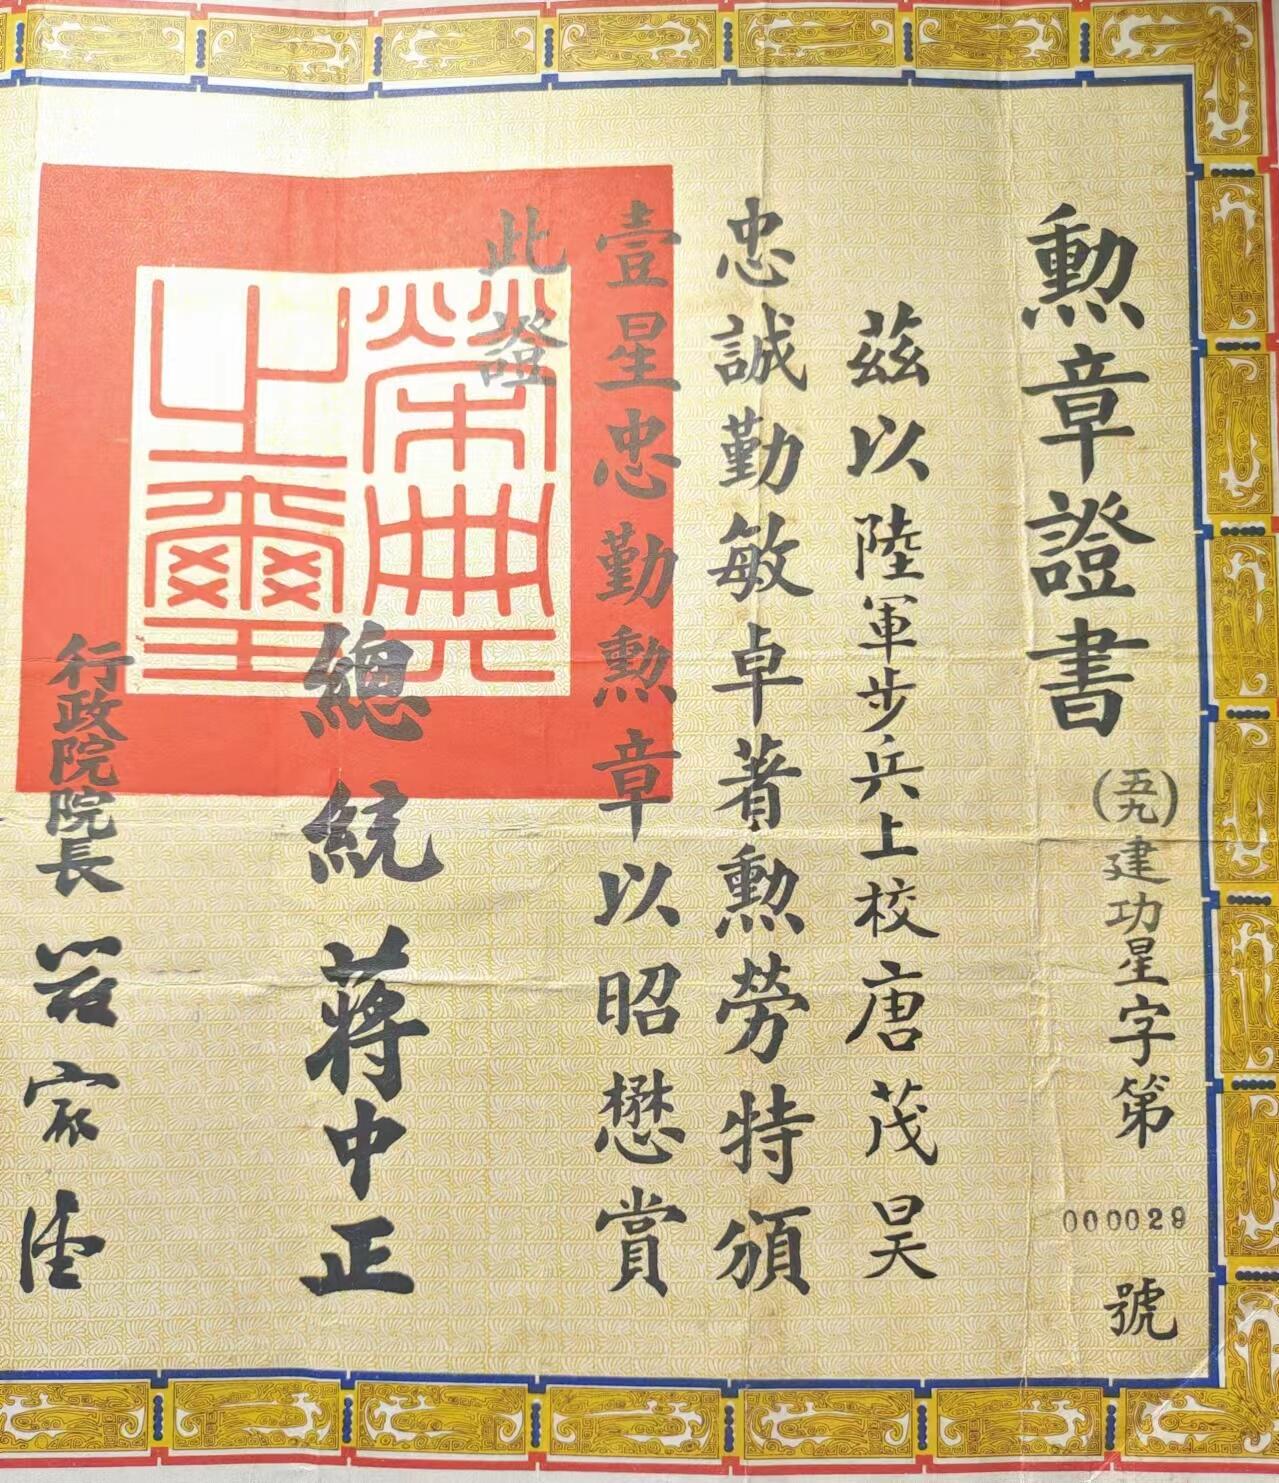 勳章證書
(五九)建功星字第 000029 號
茲以陸軍步兵上校唐茂昊
忠誠勤敏卓著勳勞特頒
壹星忠勤勳章以昭懋賞
此證
榮典之璽
總統 蔣中正
行政院院長 嚴家淦